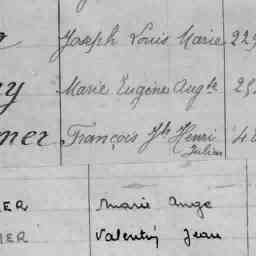 Joseph Louis Marie 229
y Marie Eugène Augte 25
mer François Jh Henri 48
Julien
ER Marie Ange
ER Valentin Jean